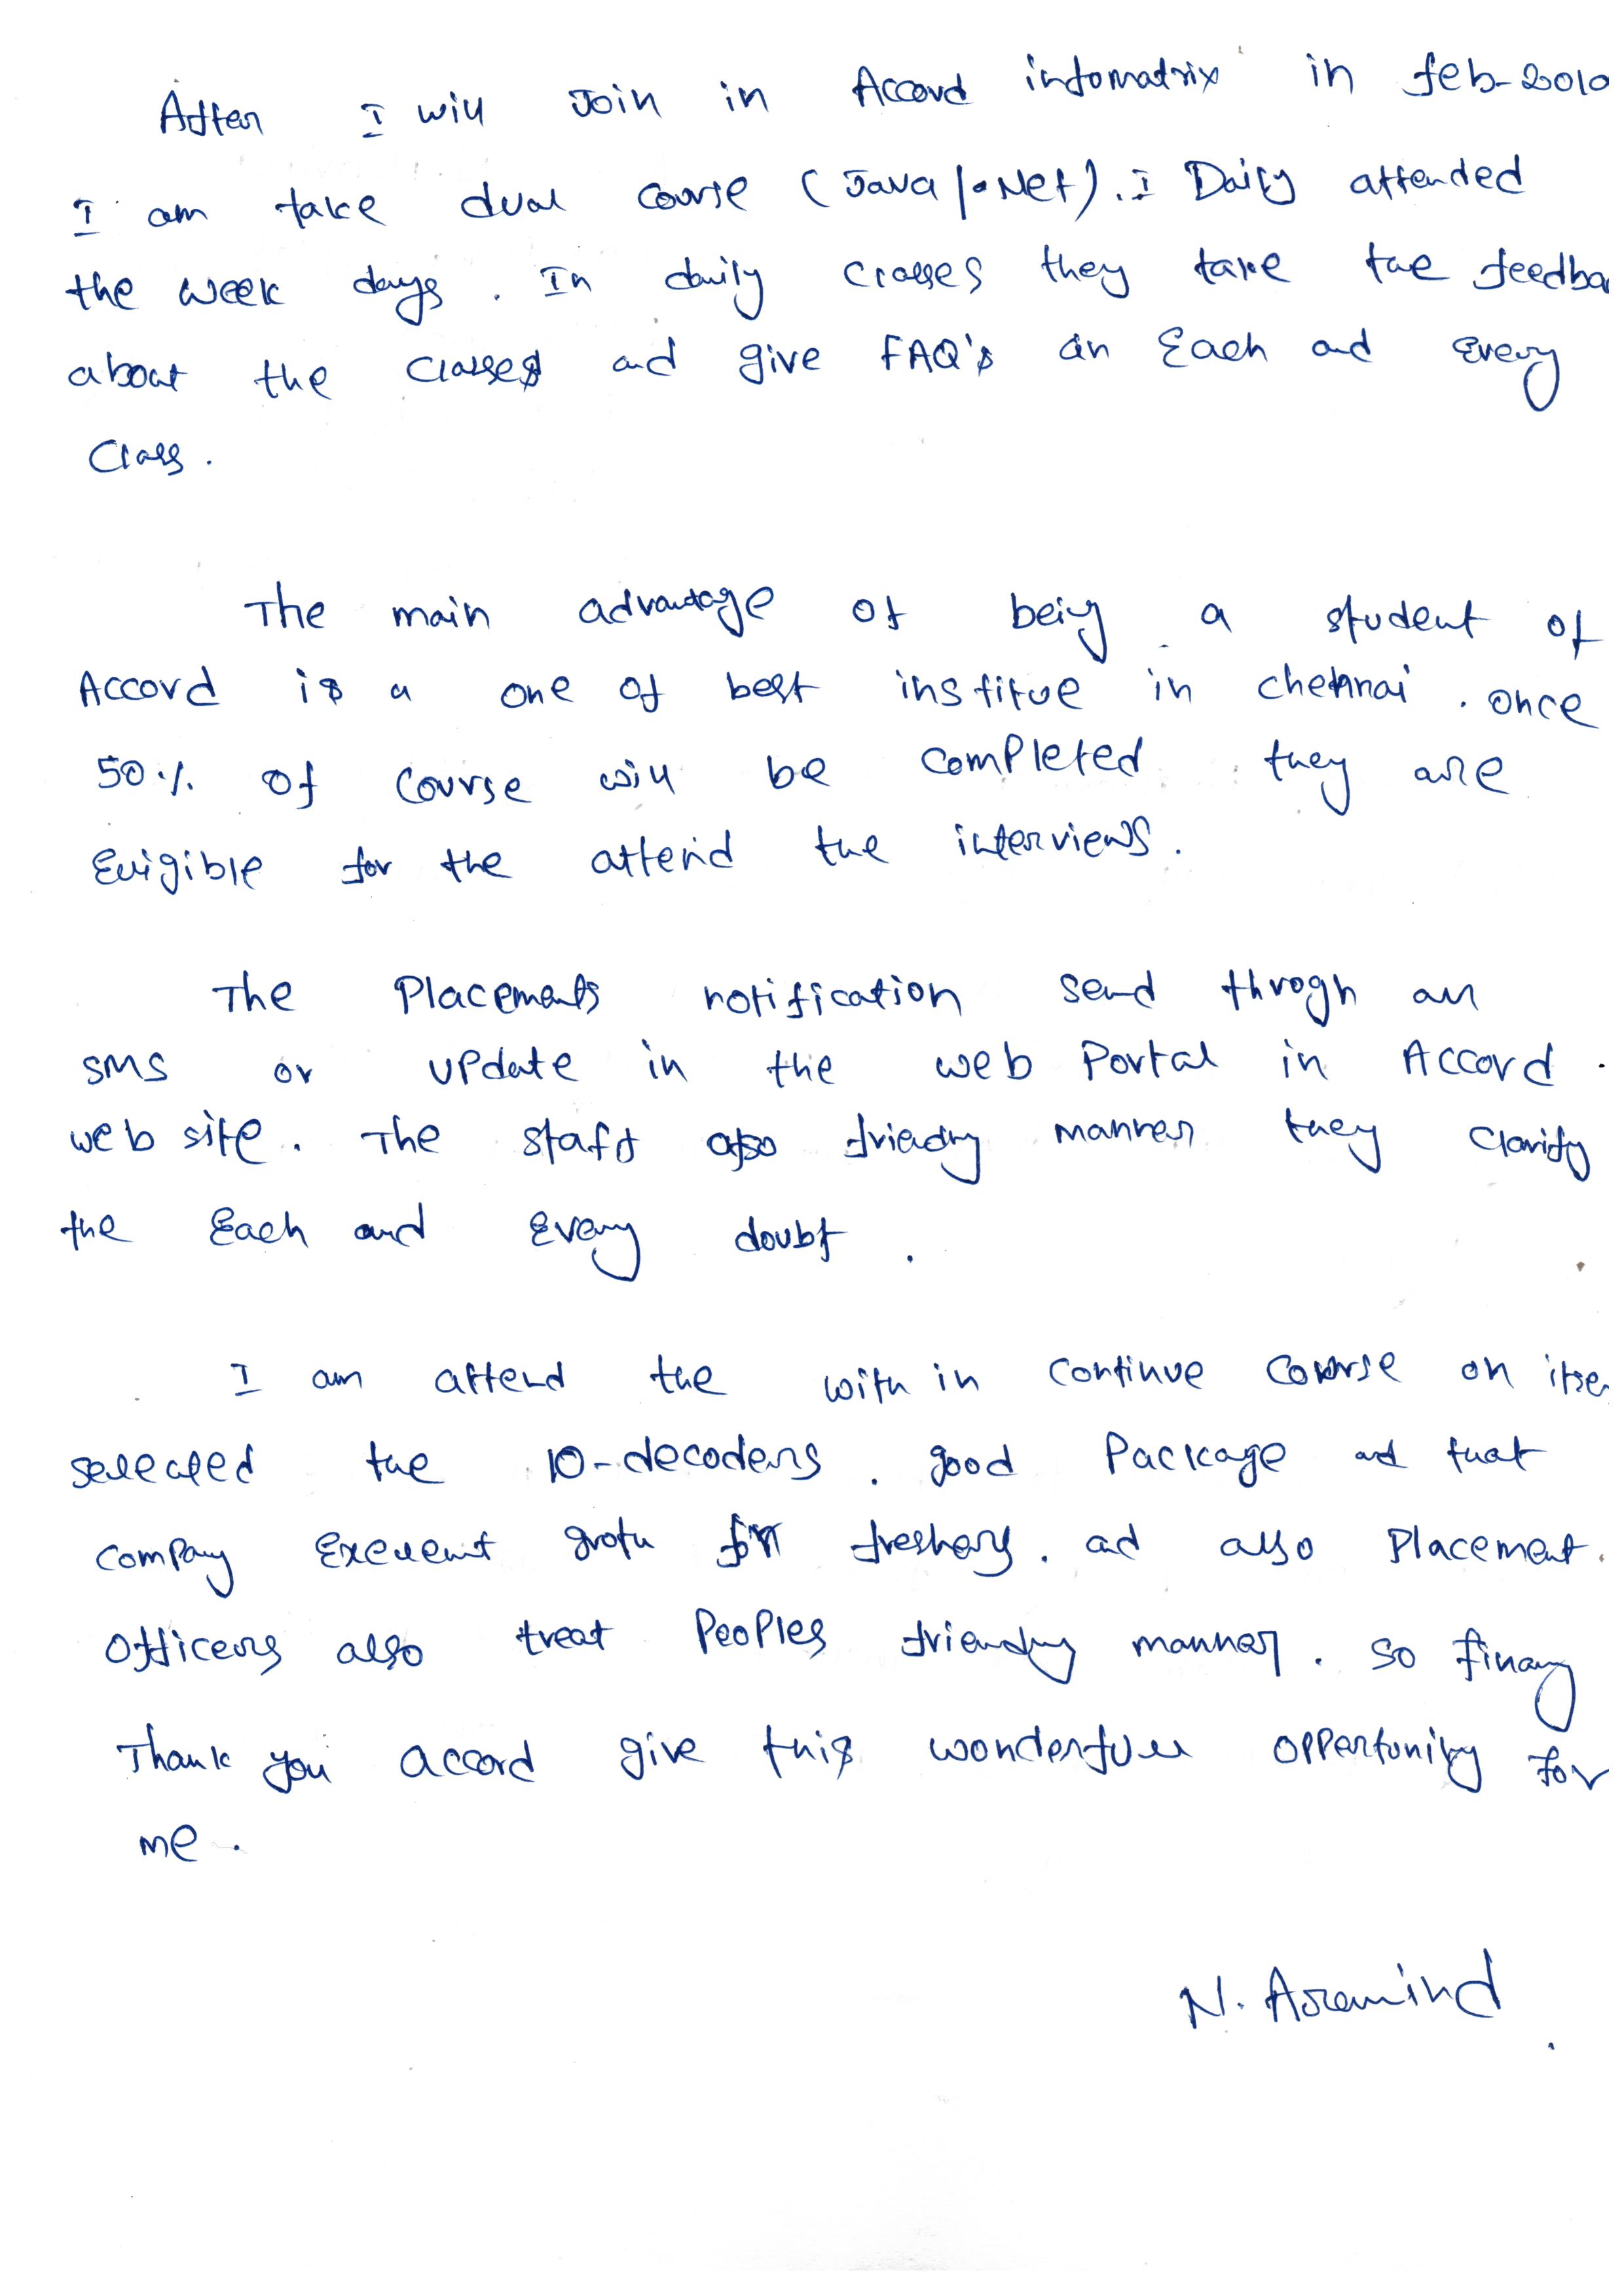 After I will Join in Accord infomatrix in feb-2010
I am take dual course (Java/.Net). I Daily attended
the week days. In daily classes they take the feedba
about the classes and give FAQ's an Each and Every
Class.
The main advantage of being a student of
Accord is a one of best institue in chennai. once
50% of course will be completed they are
Eligible for the attend the interviews.
The Placements notification send throgh an
SMS or update in the web Portal in Accord
web site. The staff also friendly manner they clarify
the Each and Every doubt.
I am attend the with in continue course on itse
selected the 10-decoders. good Package and that
company Excellent groth for freshers. ad also Placement
Officers also treat Peoples friendly manner. So finally
Thank you accord give this wonderfull oppertunity for
me.
N. Aravind